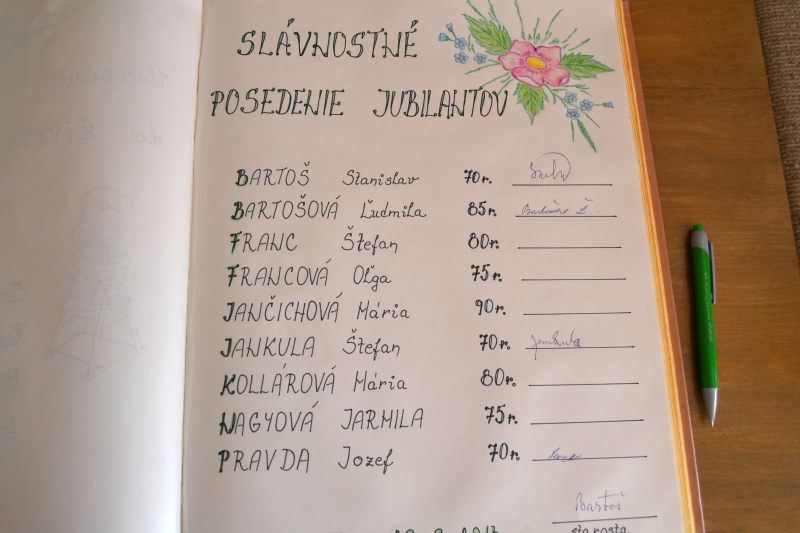 SLÁVNOSTNÉ
POSEDENIE JUBILANTOV
BARTOŠ Stanislav 70r.
BARTOŠOVÁ Ľudmila 85r. Bartošová Ľ
FRANC Štefan 80r.
FRANCOVÁ Oľga 75r.
JANČICHOVÁ Mária 90r.
JANKULA Štefan 70r. Jankula
KOLLÁROVÁ Mária 80r.
NAGYOVÁ JARMILA 75r.
PRAVDA Jozef 70r.
Bartoš
starosta